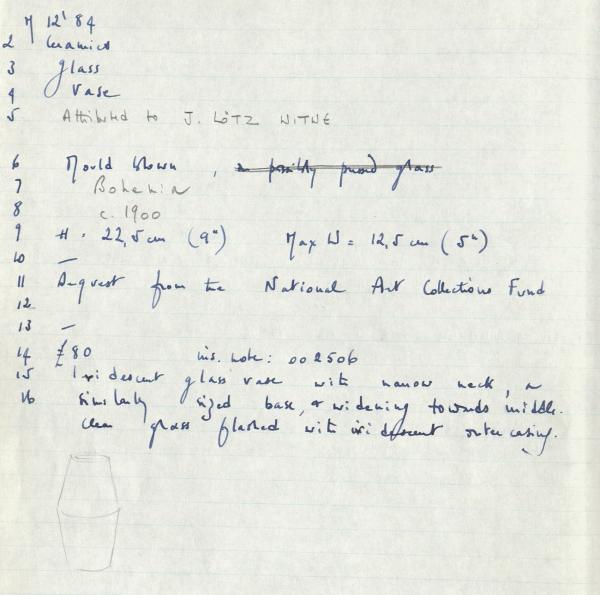 M 12'84
2 Ceramics
3 glass
4 Vase
5 Attributed to J. LÖTZ WITWE
6 Mould blown , or possibly pressed glass
7 Bohemia
8 c. 1900
9 H = 22,5 cm (9") Max W = 12,5 cm (5")
10 —
11 Bequest from the National Art Collections Fund
12
13 —
14 £80 ins. note: 002506
15 Iridescent glass vase with narrow neck, a
16 similarly sized base, & widening towards middle.
clear glass flashed with iridescent outer casing.